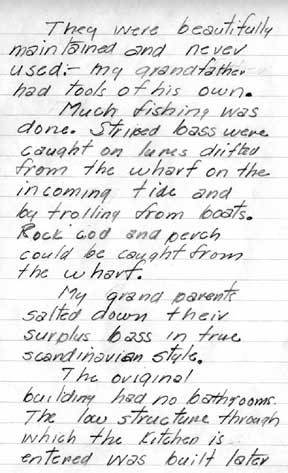 They were beautifully
maintained and never
used:- my grandfather
had tools of his own.
Much fishing was
done. Striped bass were
caught on lures drifted
from the wharf on the
incoming tide and
by trolling from boats.
Rock cod and perch
could be caught from
the wharf.
My grand parents
salted down their
surplus bass in true
scandinavian style.
The original
building had no bathrooms.
The low structure through
which the kitchen is
entered was built later